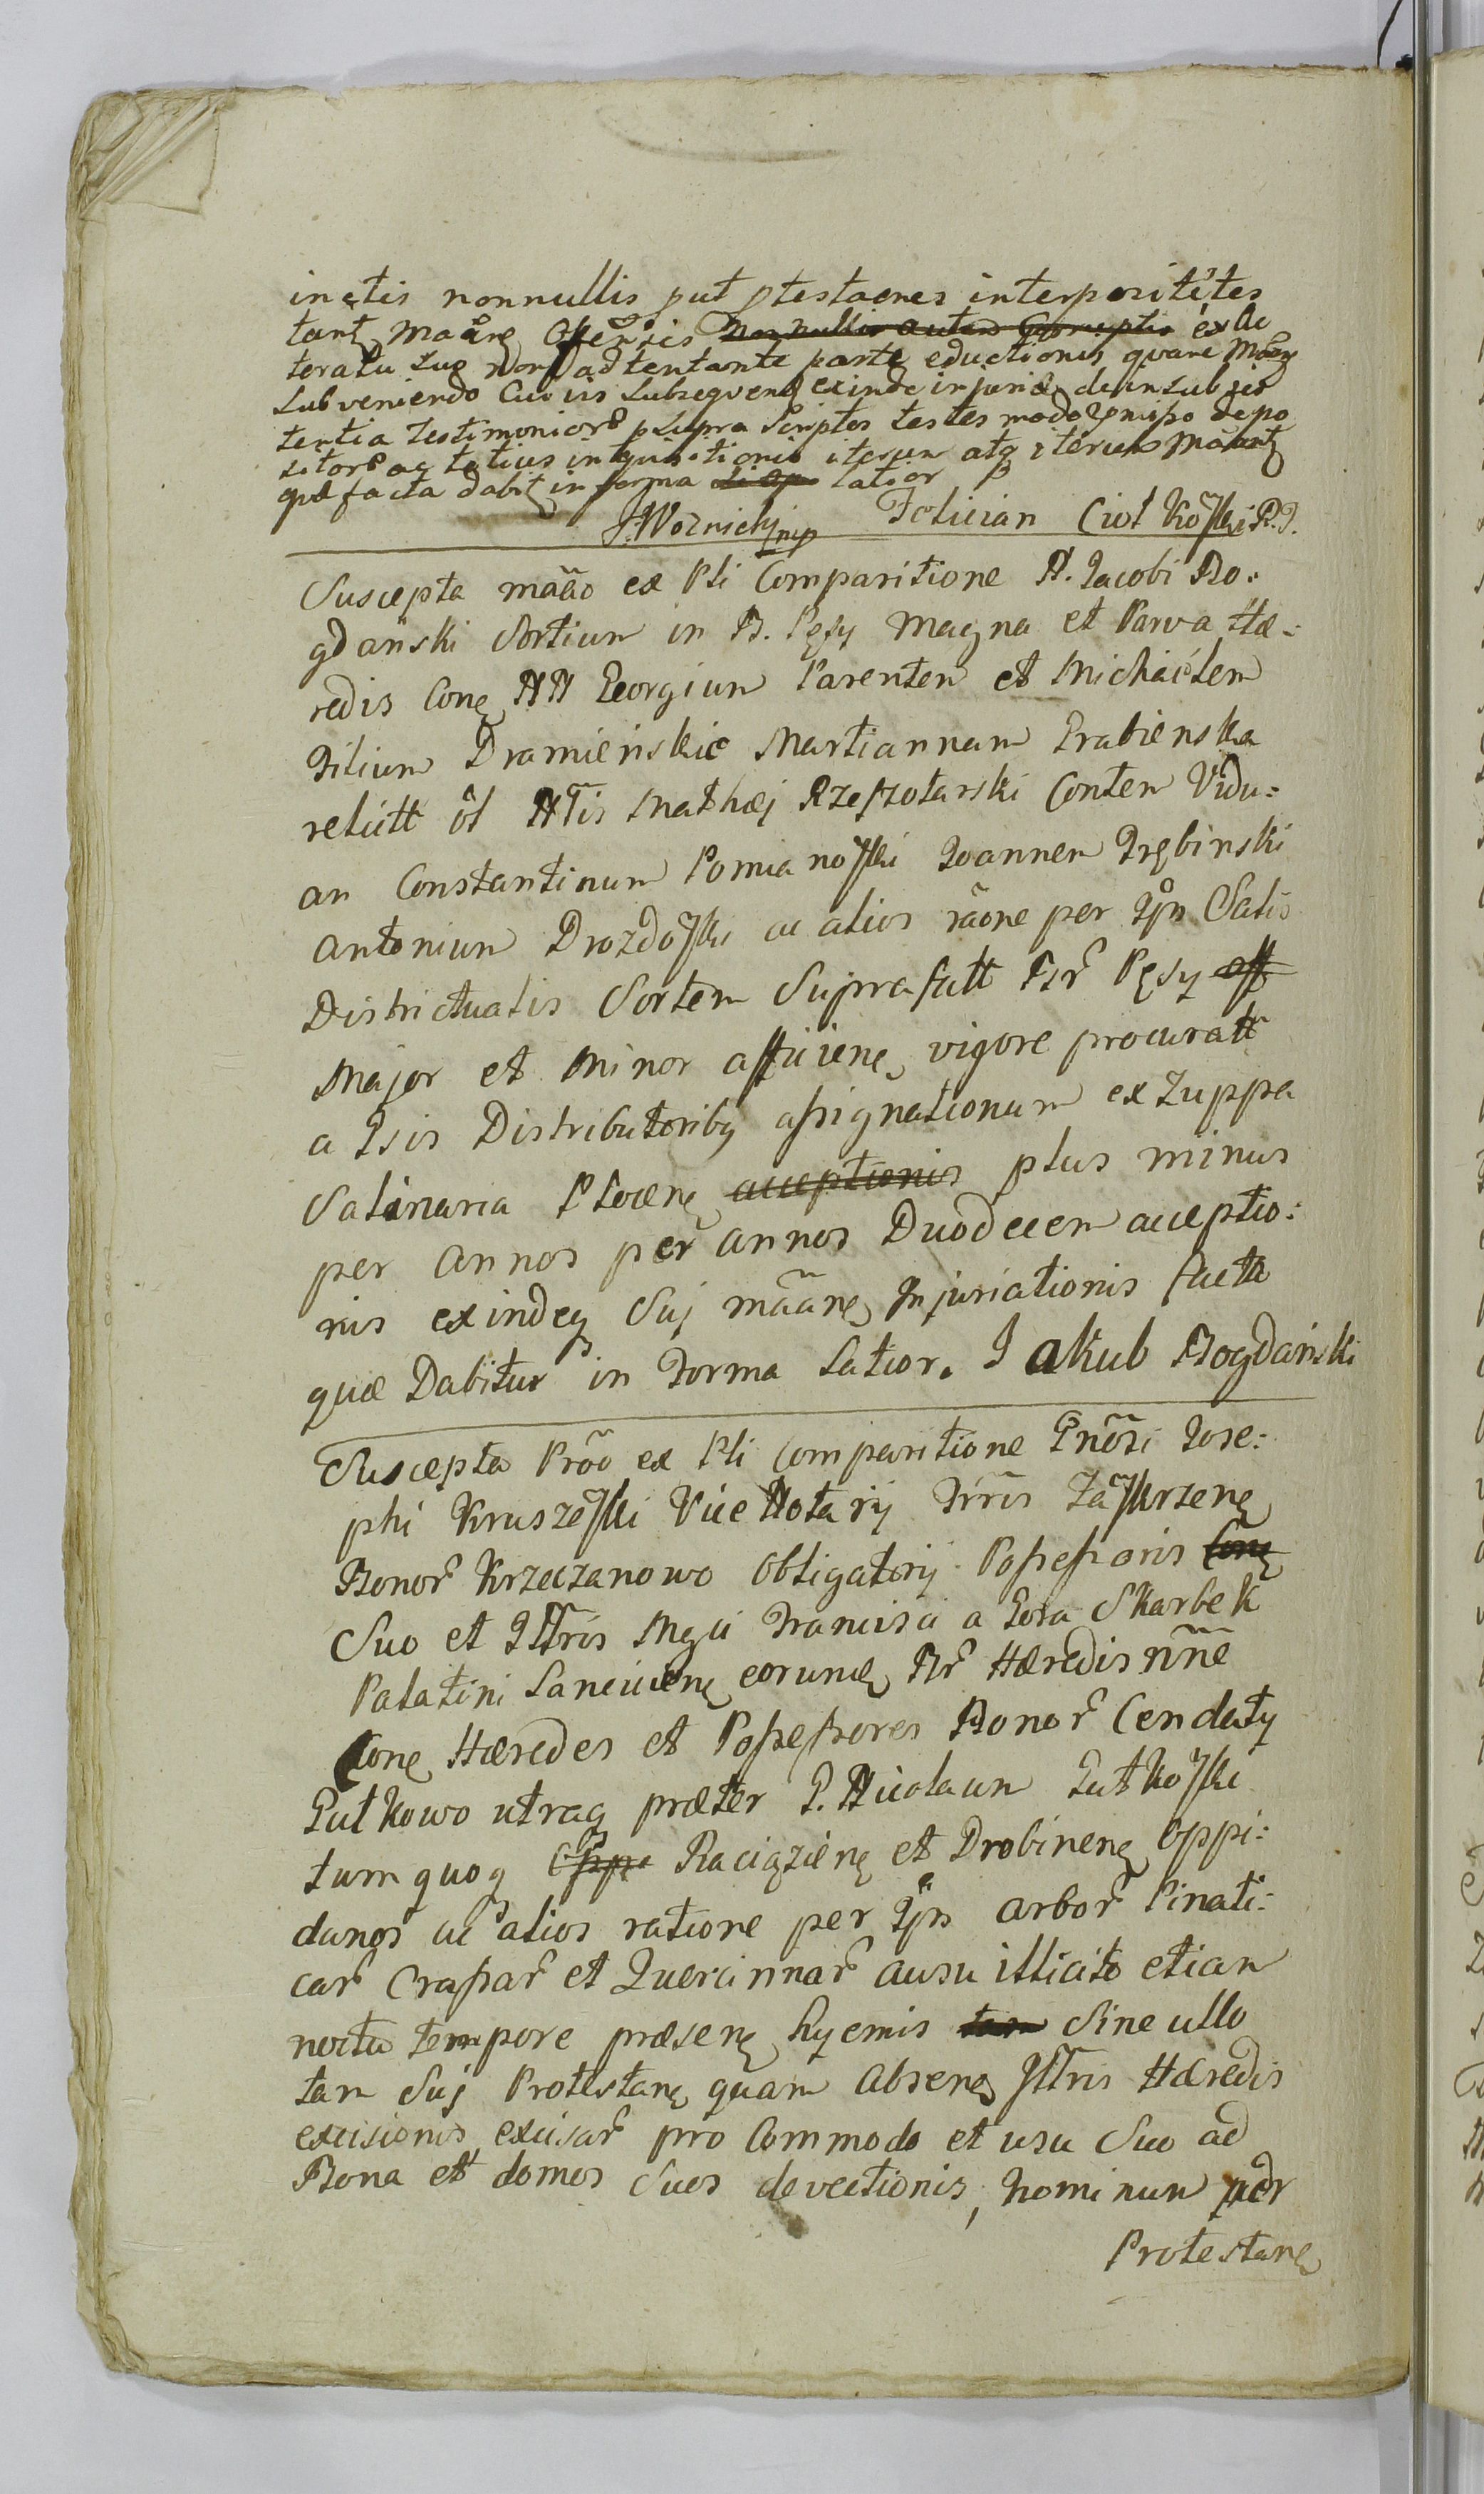 inctis nonnullis put ptestaones interposititės
tant maane
teratu suo non adtentante parte eductionis quare
subveniendo suis subsequen exinde injuriæ de insub
tentia testimonior supra scriptos testes modo præmisso depo
sitor ac totius inquisitionis iterum atq iterum manant
quæ facta dabit in forma latior
JWoznicki mp Felician Ciołkoski R. P.
Suscepta mãão ex Pli Comparitione N. Jacobi Bo:
gdański Sortium in B. Pęsy Magna et Parva Hæ:
redis Conę NN Georgium Parentem et Michaėlem
Filium Dramieńskie Martiannam Grabienska
relictt ol Nlis Mathæj Rzeszotarski Contem Vidu:
am Constantinum Pomianoski Joannem Trębinski
Antonium Drozdoski ac alios rãone per Ips Salis
Districtualis Sortem Suprafatt Br Pęsy aff
Major et Minor afficienę vigore procuratt
a Isis Distributoribq assignationum ex Zuppa
Salinaria Plocenę acceptionis plus minus
per annos per annos Duodecem acceptio:
nis exindeq Suj mãanę Injuriationis facta
quæ Dabitur in Forma Latior. Jakub Bogdański
Suscepta Prõo ex Pli Comparitione Gnõsi Jose:
phi Kruszeski Vice Notarij Trris Zaskrzenę
Bonor Krzeczanowo Obligatorij Possessoris Conę
Suo et Illris Mgci Francisci a Gora Skarbek
Palatini Lancicienę eorumę Br Hæredis nñe
Conę Hæredes et Possessores Bonor Cendaty
Gutkowo utraq præter G. Nicolaum Gutkoski
tum quoq Oppi Raciązienę et Drobinenę Oppi:
danos ac alios ratione per Ips arbor Pinati:
car Crassar et Quercinnar ausu illicito etiam
noctu tempore præsenę hyemis tam Sine ullo
tam Suj Protestanę quam absenę Illris Hæredis
excisionis excisar pro Commodo et usu Suo ad
Bona et domos Suos devectionis, hominum
Protestanę